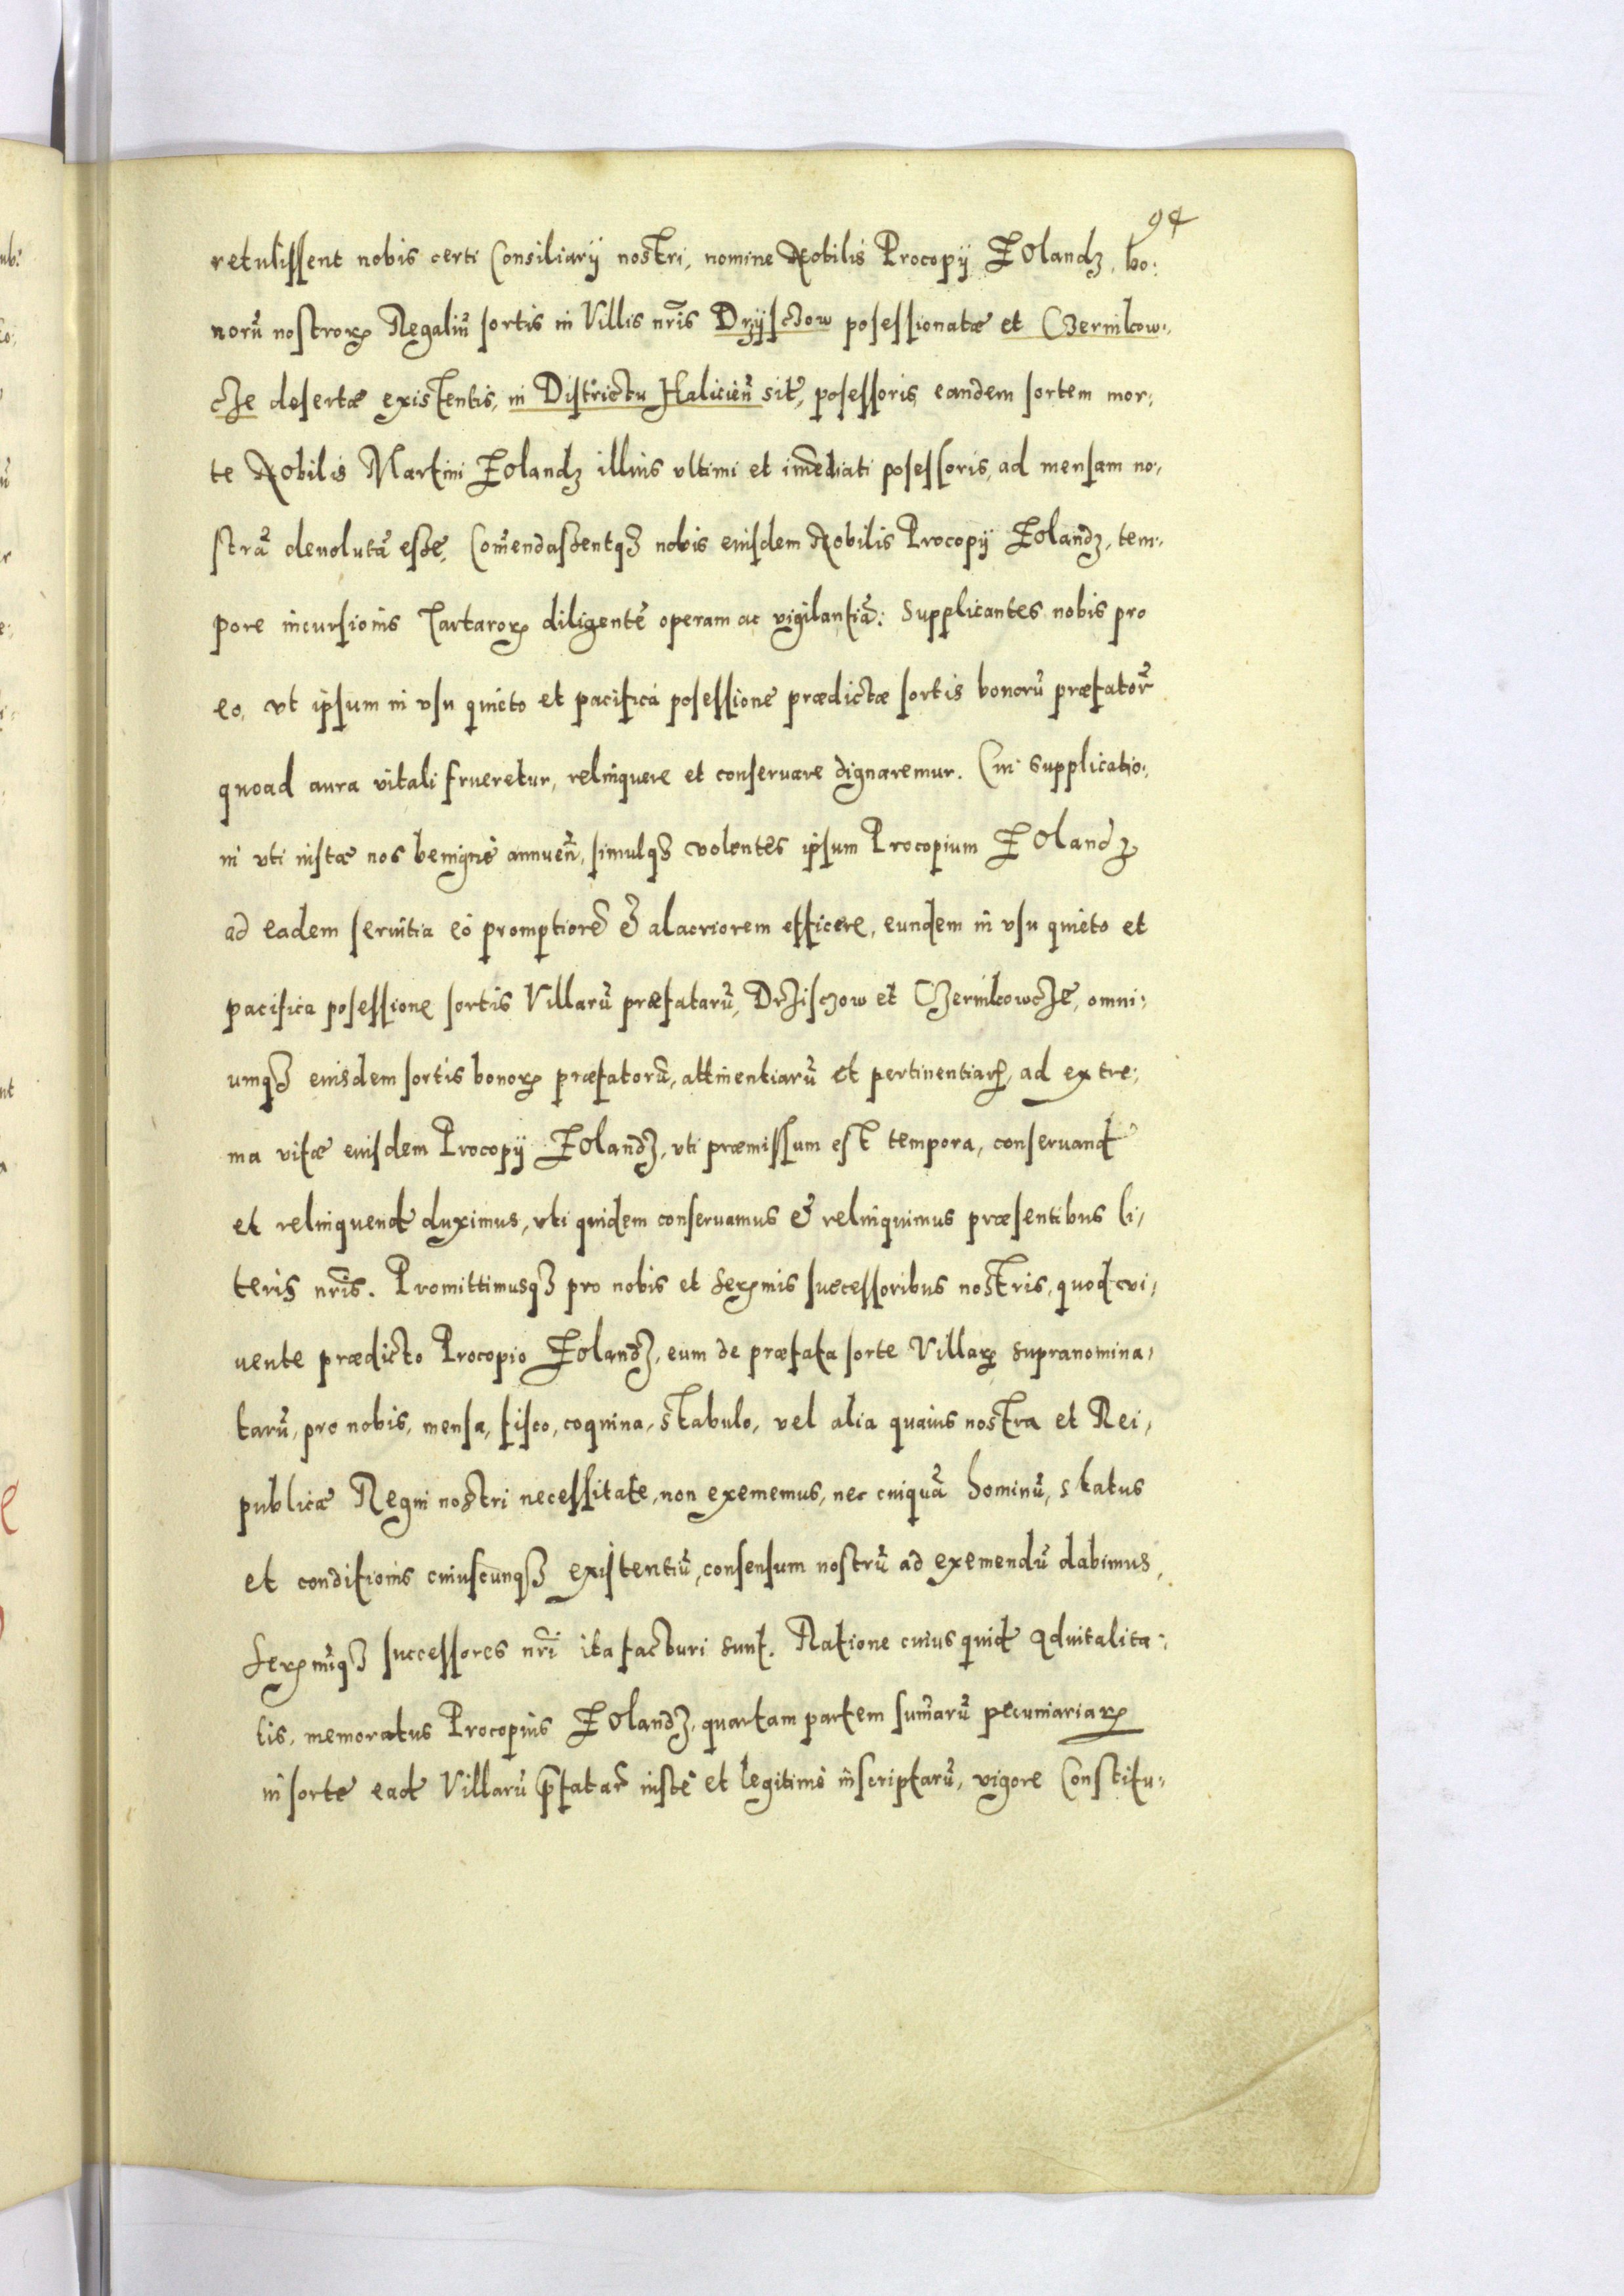 94
retulissent nobis certi Consiliarÿ nostri, nomine Nobilis Procopÿ Żolandz, bo:
norũ nostroꝝ Regaliũ sortis in Villis nr̃is Drzÿsczow posessionatæ et Czernikow:
cze desertæ existentis, in Districtu Haliciẽn sit̃, posessoris, eandem sortem mor:
te Nobilis Martini Żolandz illius vltimi et im̃ediati posessoris, ad mensam no:
strã deuolutã esse, Com̃endassentqꝫ nobis eiusdem Nobilis Procopÿ Żolandz, tem:
pore incursionis Tartaroꝝ diligentẽ operam ac vigilantiã: Supplicantes nobis pro
eo, vt ipsum in vsu quieto et pacifica posessione prædictæ sortis bonorũ præfator̃
quoad aura vitali frueretur, relinquere et conseruare dignaremur. Cui supplicatio:
ni vti iustæ nos benignè annueñ, simulqꝫ volentes ipsum Procopium Żolandz
ad eadem seruitia eò promptiorẽ & alacriorem efficere, eundem in vsu quieto et
pacifica posessione sortis Villarũ præfatarũ, Drzisczow et Czernikowcze, omni:
umqꝫ eiusdem sortis bonoꝝ præfatorũ, attinentiarũ et pertinentiarꝝ, ad extre:
ma vitæ eiusdem Procopÿ Żolandz, vti præmissum est tempora, conseruand̃
et relinquend̃ duximus, vti quidem conseruamus & relinquimus præsentibus li:
teris nr̃is. Promittimusqꝫ pro nobis et Serꝝmis successoribus nostris, quod vi:
uente prædicto Procopio Żolandz, eum de præfata sorte Villaꝝ supranomina:
tarũ, pro nobis, mensa, fisco, coquina, stabulo, vel alia quauis nostra et Rei:
publicæ Regni nostri necessitate, non exememus, nec cuiquã hominũ, status
et conditionis cuiuscunqꝫ existentiũ, consensum nostrũ ad exemendũ dabimus,
Serꝝmiqꝫ successores nr̃i ita facturi sunt. Ratione cuius quid̃ aduitalita:
tis, memoratus Procopius Żolandz, quartam partem sum̃arũ pecuniariaꝝ
in sorte ead̃ Villarũ p̃fatar̃ iustè et legitimè inscriptarũ, vigore Constitu: